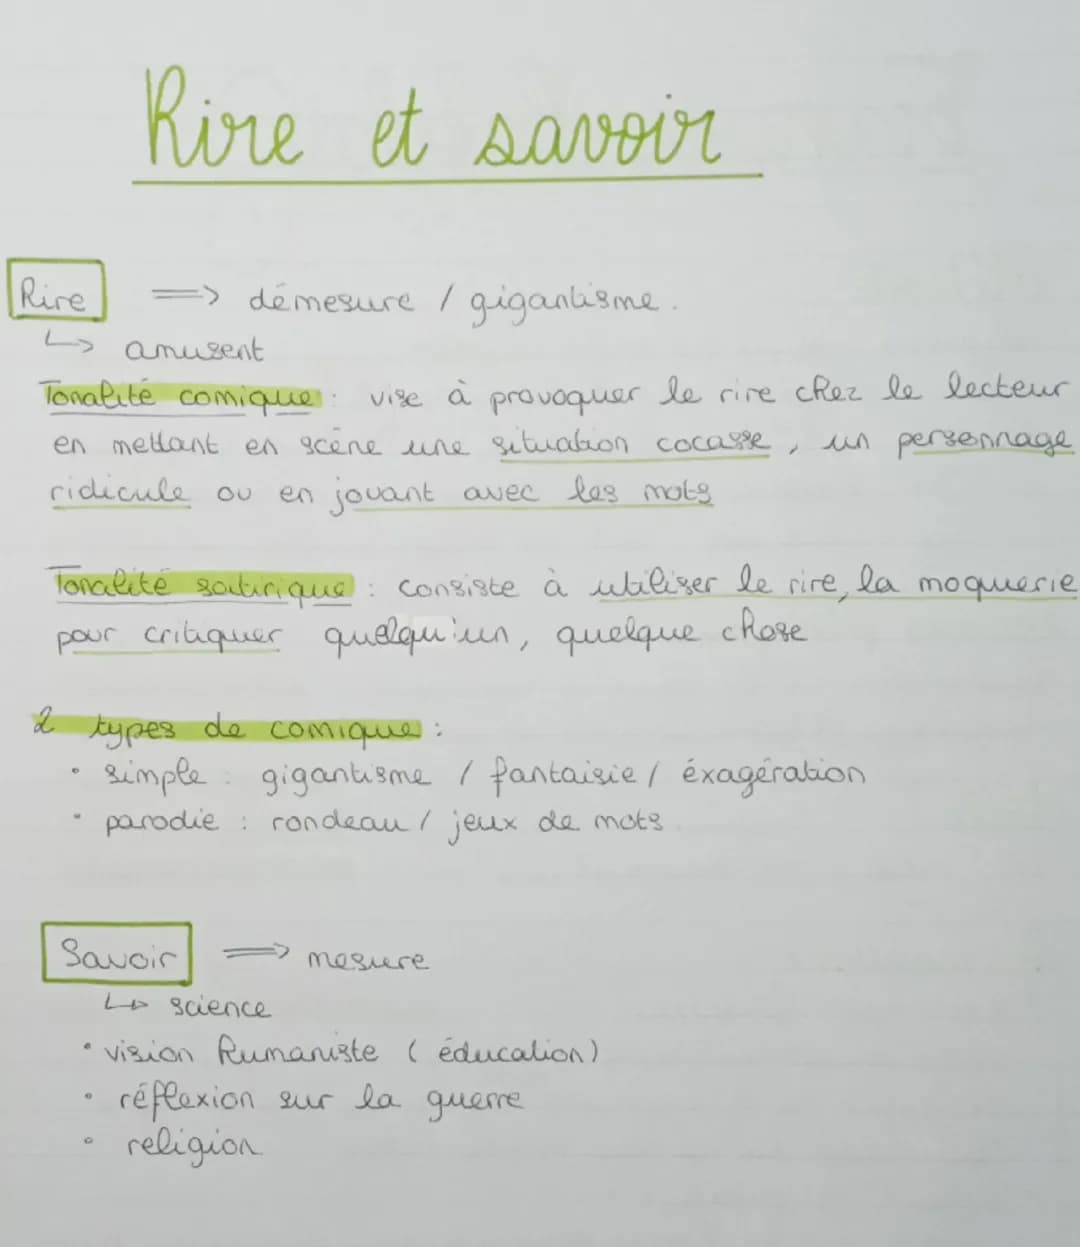 Rire et savoir
Rire => démesure / gigantisme.
↳ amusent
Tonalité comique : vise à provoquer le rire chez le lecteur
en mettant en scène une situation cocasse, un personnage
ridicule ou en jouant avec les mots
Tonalité satirique : consiste à utiliser le rire, la moquerie
pour critiquer quelqu'un, quelque chose
2 types de comique :
• simple : gigantisme / fantaisie / éxagération
• parodie : rondeau / jeux de mots
Savoir => mesure
↳ science
• vision humaniste (éducation)
• réflexion sur la guerre
• religion